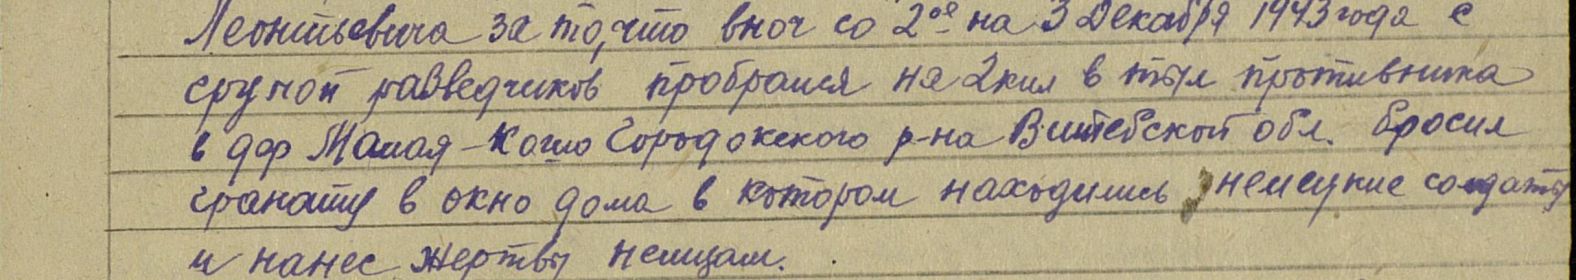 Леонтьевича за то, что вноч со 2ое на 3 Декабря 1943 года с
групой разведчиков пробрался на 2 кил в тыл противника
в дер Малая-Кошо Городокского р-на Витебской обл. бросил
гранату в окно дома в котором находились немецкие солдаты
и нанес жертвы немцам.